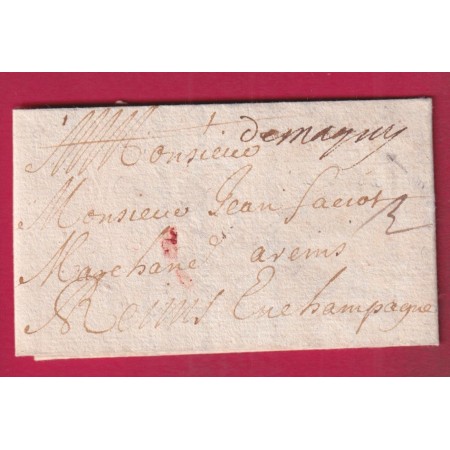 Monsieur demagny
Monsieur Jean Faciot
Marchand a reims
Reims En champagne